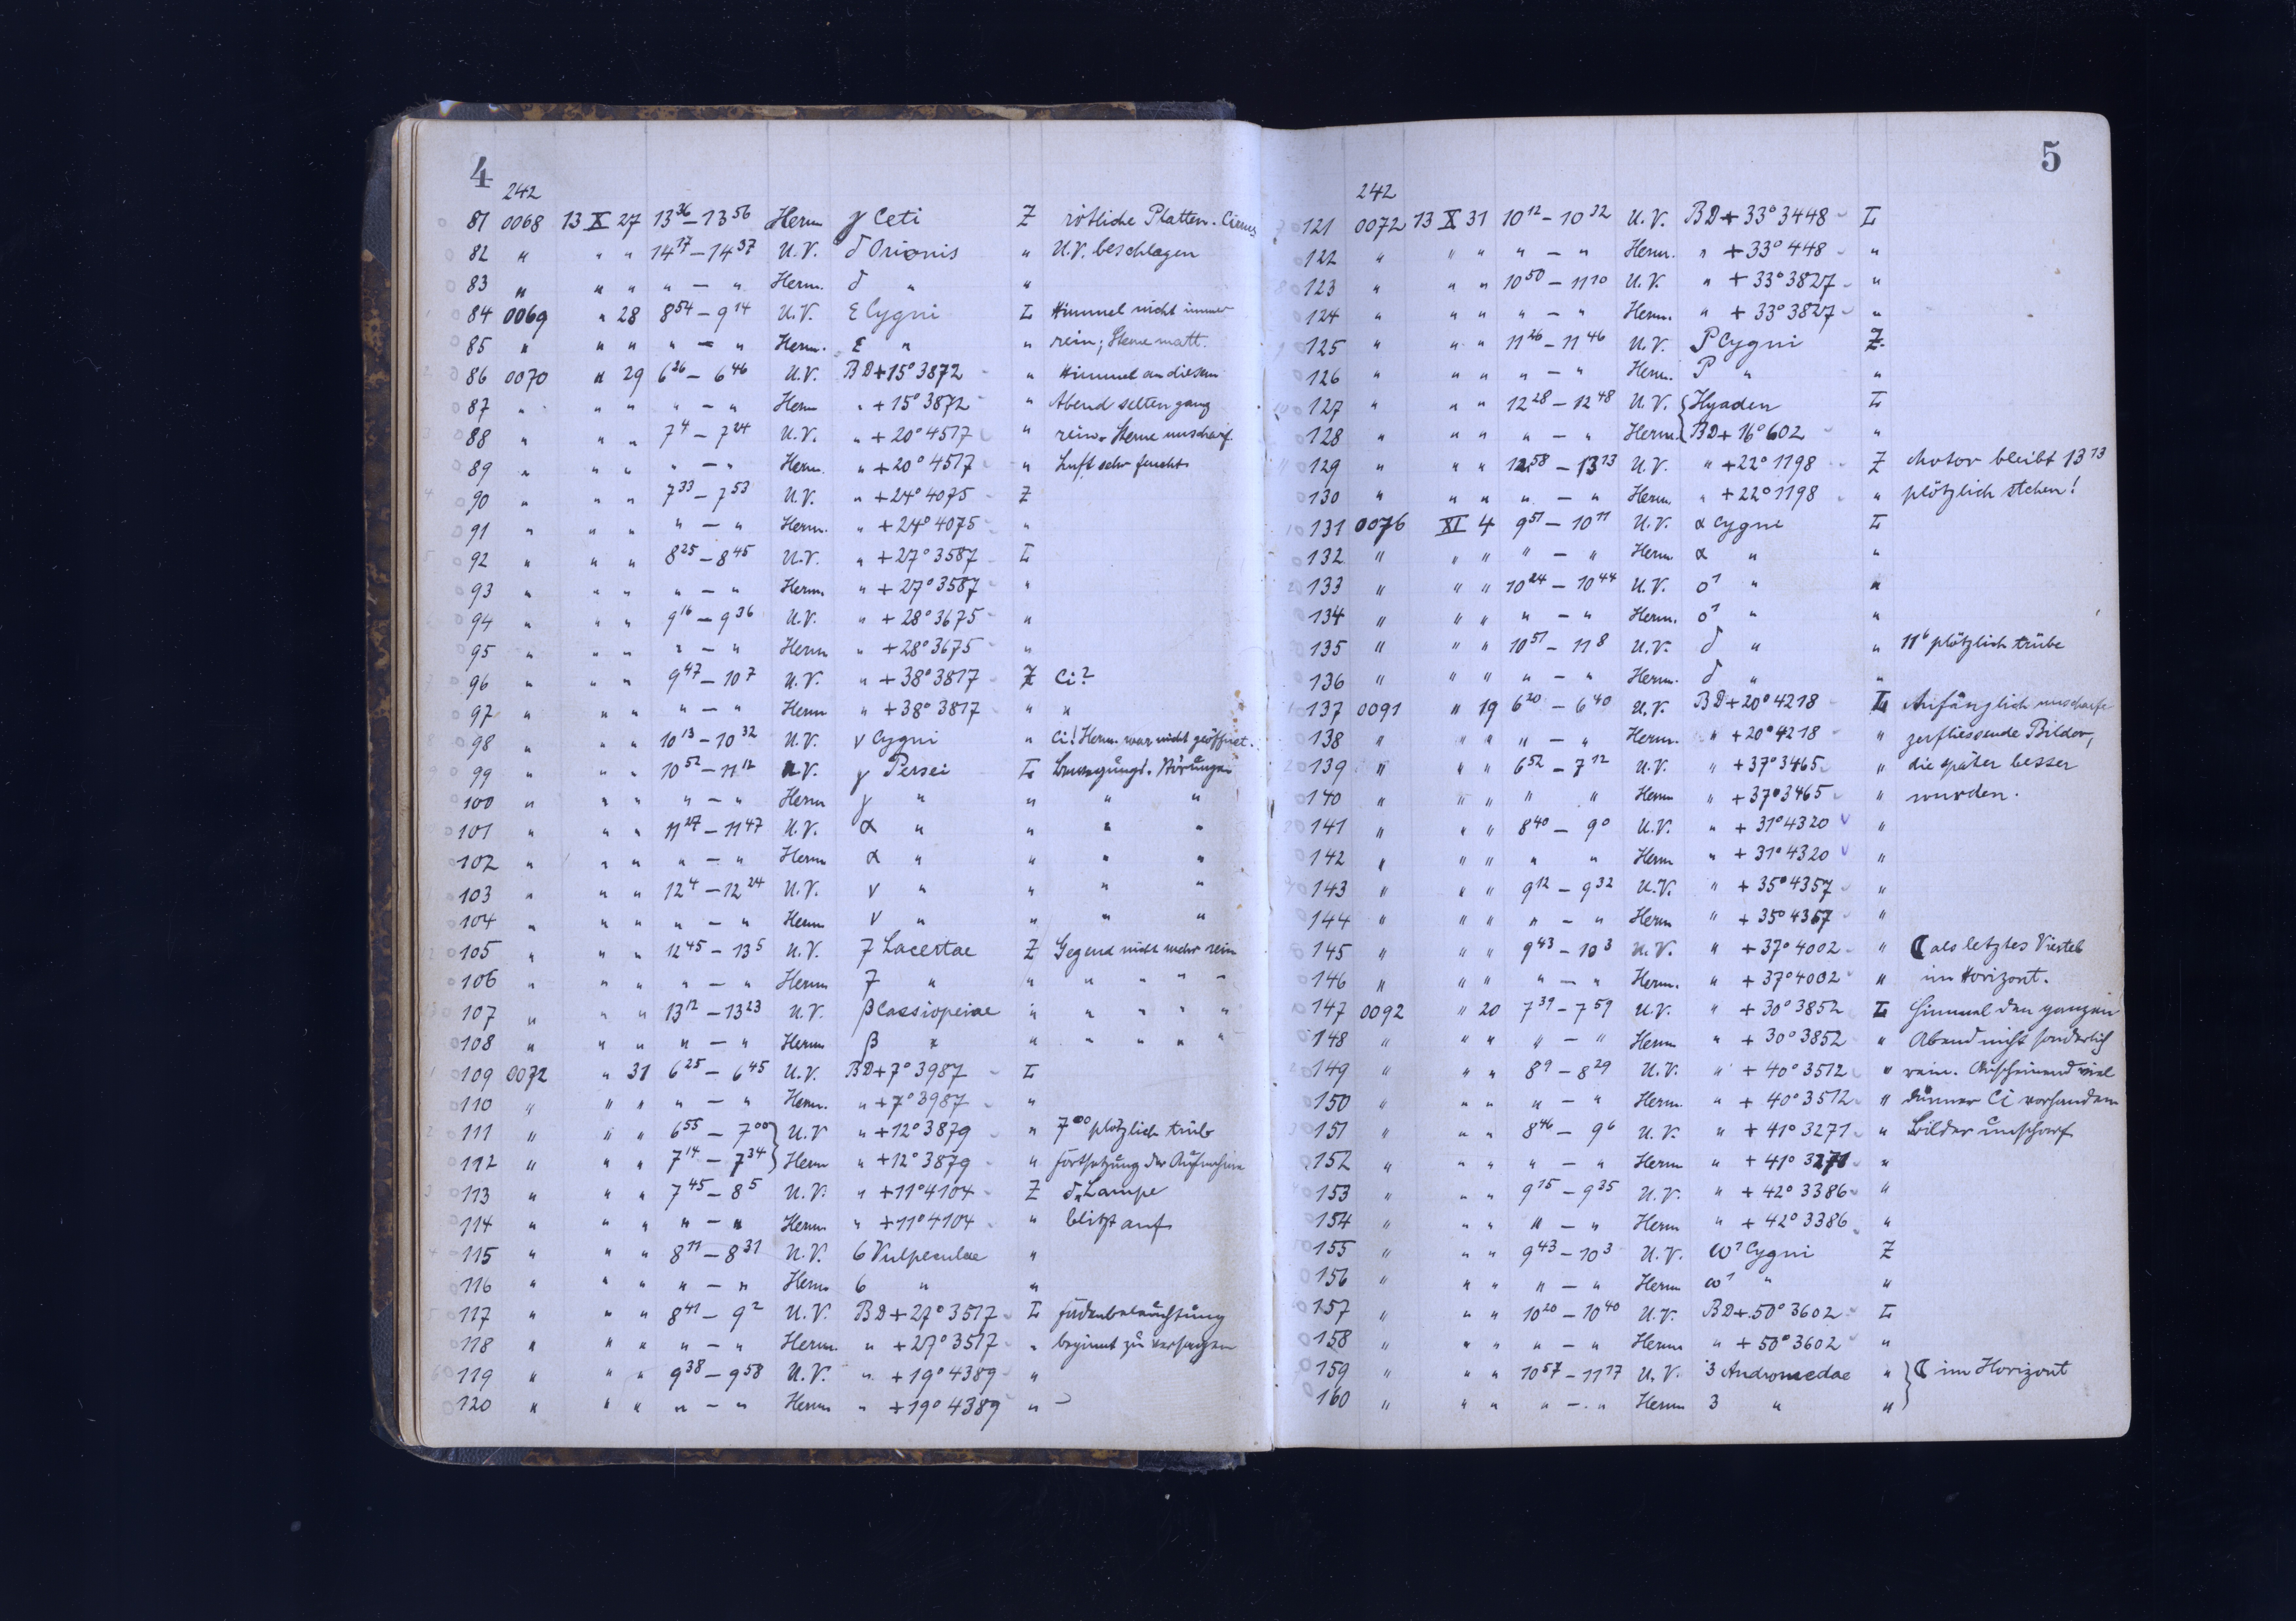 4
242
81 0068 13 X 27 13 36 – 13 56 Herm γ Ceti Z rötliche Platten. Cirrus
82 " " " 14 17 – 14 37 U.V. δ Orionis " U.V. beschlagen
83 " " " " – " Herm. δ " "
84 0069 " 28 8 54 – 9 14 U.V. ε Cygni L Himmel nicht immer
85 " " " " – " Herm. ε " " rein; Sterne matt.
86 0070 " 29 6 26 – 6 46 U.V. BD+15° 3872 " Himmel an diesem
87 " " " " – " Herm " +15° 3872 " Abend selten ganz
88 " " " 7 4 – 7 24 U.V. " +20° 4517 " rein. Sterne unscharf.
89 " " " " – " Herm. " +20° 4517 " Luft sehr feucht
90 " " " 7 33 – 7 53 U.V. " +24° 4075 Z
91 " " " " – " Herm. " +24° 4075 "
92 " " " 8 25 – 8 45 U.V. " +27° 3587 L
93 " " " " – " Herm. " +27° 3587 "
94 " " " 9 16 – 9 36 U.V. " +28° 3675 "
95 " " " " – " Herm " +28° 3675 "
96 " " " 9 47 – 10 7 U.V. " +38° 3817 Z Ci?
97 " " " " – " Herm " +38° 3817 " "
98 " " " 10 13 – 10 32 U.V. ν Cygni " Ci! Herm. war nicht geöffnet.
99 " " " 10 52 – 11 12 U.V. γ Persei L Bewegungs. Störungen
100 " " " " – " Herm γ " " " "
101 " " " 11 27 – 11 47 U.V. α " " " "
102 " " " " – " Herm α " " " "
103 " " " 12 4 – 12 24 U.V. ν " " " "
104 " " " " – " Herm ν " " " "
105 " " " 12 45 – 13 5 U.V. 7 Lacertae Z Gegend nicht mehr rein
106 " " " " – " Herm 7 " " " " " "
107 " " " 13 12 – 13 23 U.V. β Cassiopeiae " " " " "
108 " " " " – " Herm β " " " " " "
109 0072 " 31 6 25 – 6 45 U.V. BD+7° 3987 L
110 " " " " – " Herm. " +7° 3987 "
111 " " " 6 55 – 7 00 } U.V " +12° 3879 " 7 00 plötzlich trüb
112 " " " 7 14 – 7 34 } Herm " +12° 3879 " Fortsetzung der Aufnahme
113 " " " 7 45 – 8 5 U.V. " +11° 4104 Z d. Lampe
114 " " " " – " Herm " +11° 4104 " blitzt auf
115 " " " 8 11 – 8 31 U.V. 6 Vulpeculae "
116 " " " " – " Herm 6 " "
117 " " " 8 41 – 9 2 U.V. BD+27° 3517 L Fadenbeleuchtung
118 " " " " – " Herm. " +27° 3517 " beginnt zu versagen
119 " " " 9 38 – 9 58 U.V. " +19° 4389 "
120 " " " " – " Herm " +19° 4389 "
5
242
121 0072 13 X 31 10 12 – 10 32 U.V. BD+33° 3448 L
122 " " " " – " Herm. " +33° 448 "
123 " " " 10 50 – 11 10 U.V. " +33° 3827 "
124 " " " " – " Herm. " +33° 3827 "
125 " " " 11 26 – 11 46 U.V. P Cygni Z
126 " " " " – " Herm. P " "
127 " " " 12 28 – 12 48 U.V. { Hyaden L
128 " " " " – " Herm. { BD+16° 602 "
129 " " " 12 58 – 13 13 U.V. " +22° 1198 Z Motor bleibt 13 13
130 " " " " – " Herm " +22° 1198 " plötzlich stehen!
131 0076 XI 4 9 51 – 10 11 U.V. α Cygni L
132 " " " " – " Herm α " "
133 " " " 10 24 – 10 44 U.V. ο1 " "
134 " " " " – " Herm. ο1 " "
135 " " " 10 51 – 11 8 U.V. δ " " 11 6 plötzlich trübe
136 " " " " – " Herm. δ " "
137 0091 " 19 6 20 – 6 40 U.V. BD+20° 4218 L Anfänglich unscharfe
138 " " " " – " Herm. " +20° 4218 " zerfliessende Bilder,
139 " " " 6 52 – 7 12 U.V. " +37° 3465 " die später besser
140 " " " " " Herm " +37° 3465 " wurden.
141 " " " 8 40 – 9 0 U.V. " +31° 4320 "
142 " " " " " Herm " +31° 4320 "
143 " " " 9 12 – 9 32 U.V. " +35° 4357 "
144 " " " " – " Herm " +35° 4357 "
145 " " " 9 43 – 10 3 U.V. " +37° 4002 " ☾ als letztes Viertel
146 " " " " – " Herm. " +37° 4002 " im Horizont.
147 0092 " 20 7 39 – 7 59 U.V. " +30° 3852 L Himmel den ganzen
148 " " " " – " Herm " +30° 3852 " Abend nicht sonderlich
149 " " " 8 9 – 8 29 U.V. " +40° 3512 " rein. Anscheinend viel
150 " " " " – " Herm. " +40° 3512 " dünner Ci vorhanden
151 " " " 8 46 – 9 6 U.V. " +41° 3271 " Bilder unscharf
152 " " " " – " Herm " +41° 3271 "
153 " " " 9 15 – 9 35 U.V. " +42° 3386 "
154 " " " " – " Herm " +42° 3386 "
155 " " " 9 43 – 10 3 U.V. ω1 Cygni Z
156 " " " " – " Herm ω1 " "
157 " " " 10 20 – 10 40 U.V. BD+50° 3602 L
158 " " " " – " Herm " +50° 3602 "
159 " " " 10 57 – 11 17 U.V. 3 Andromedae " } ☾ im Horizont
160 " " " " – " Herm 3 " " }